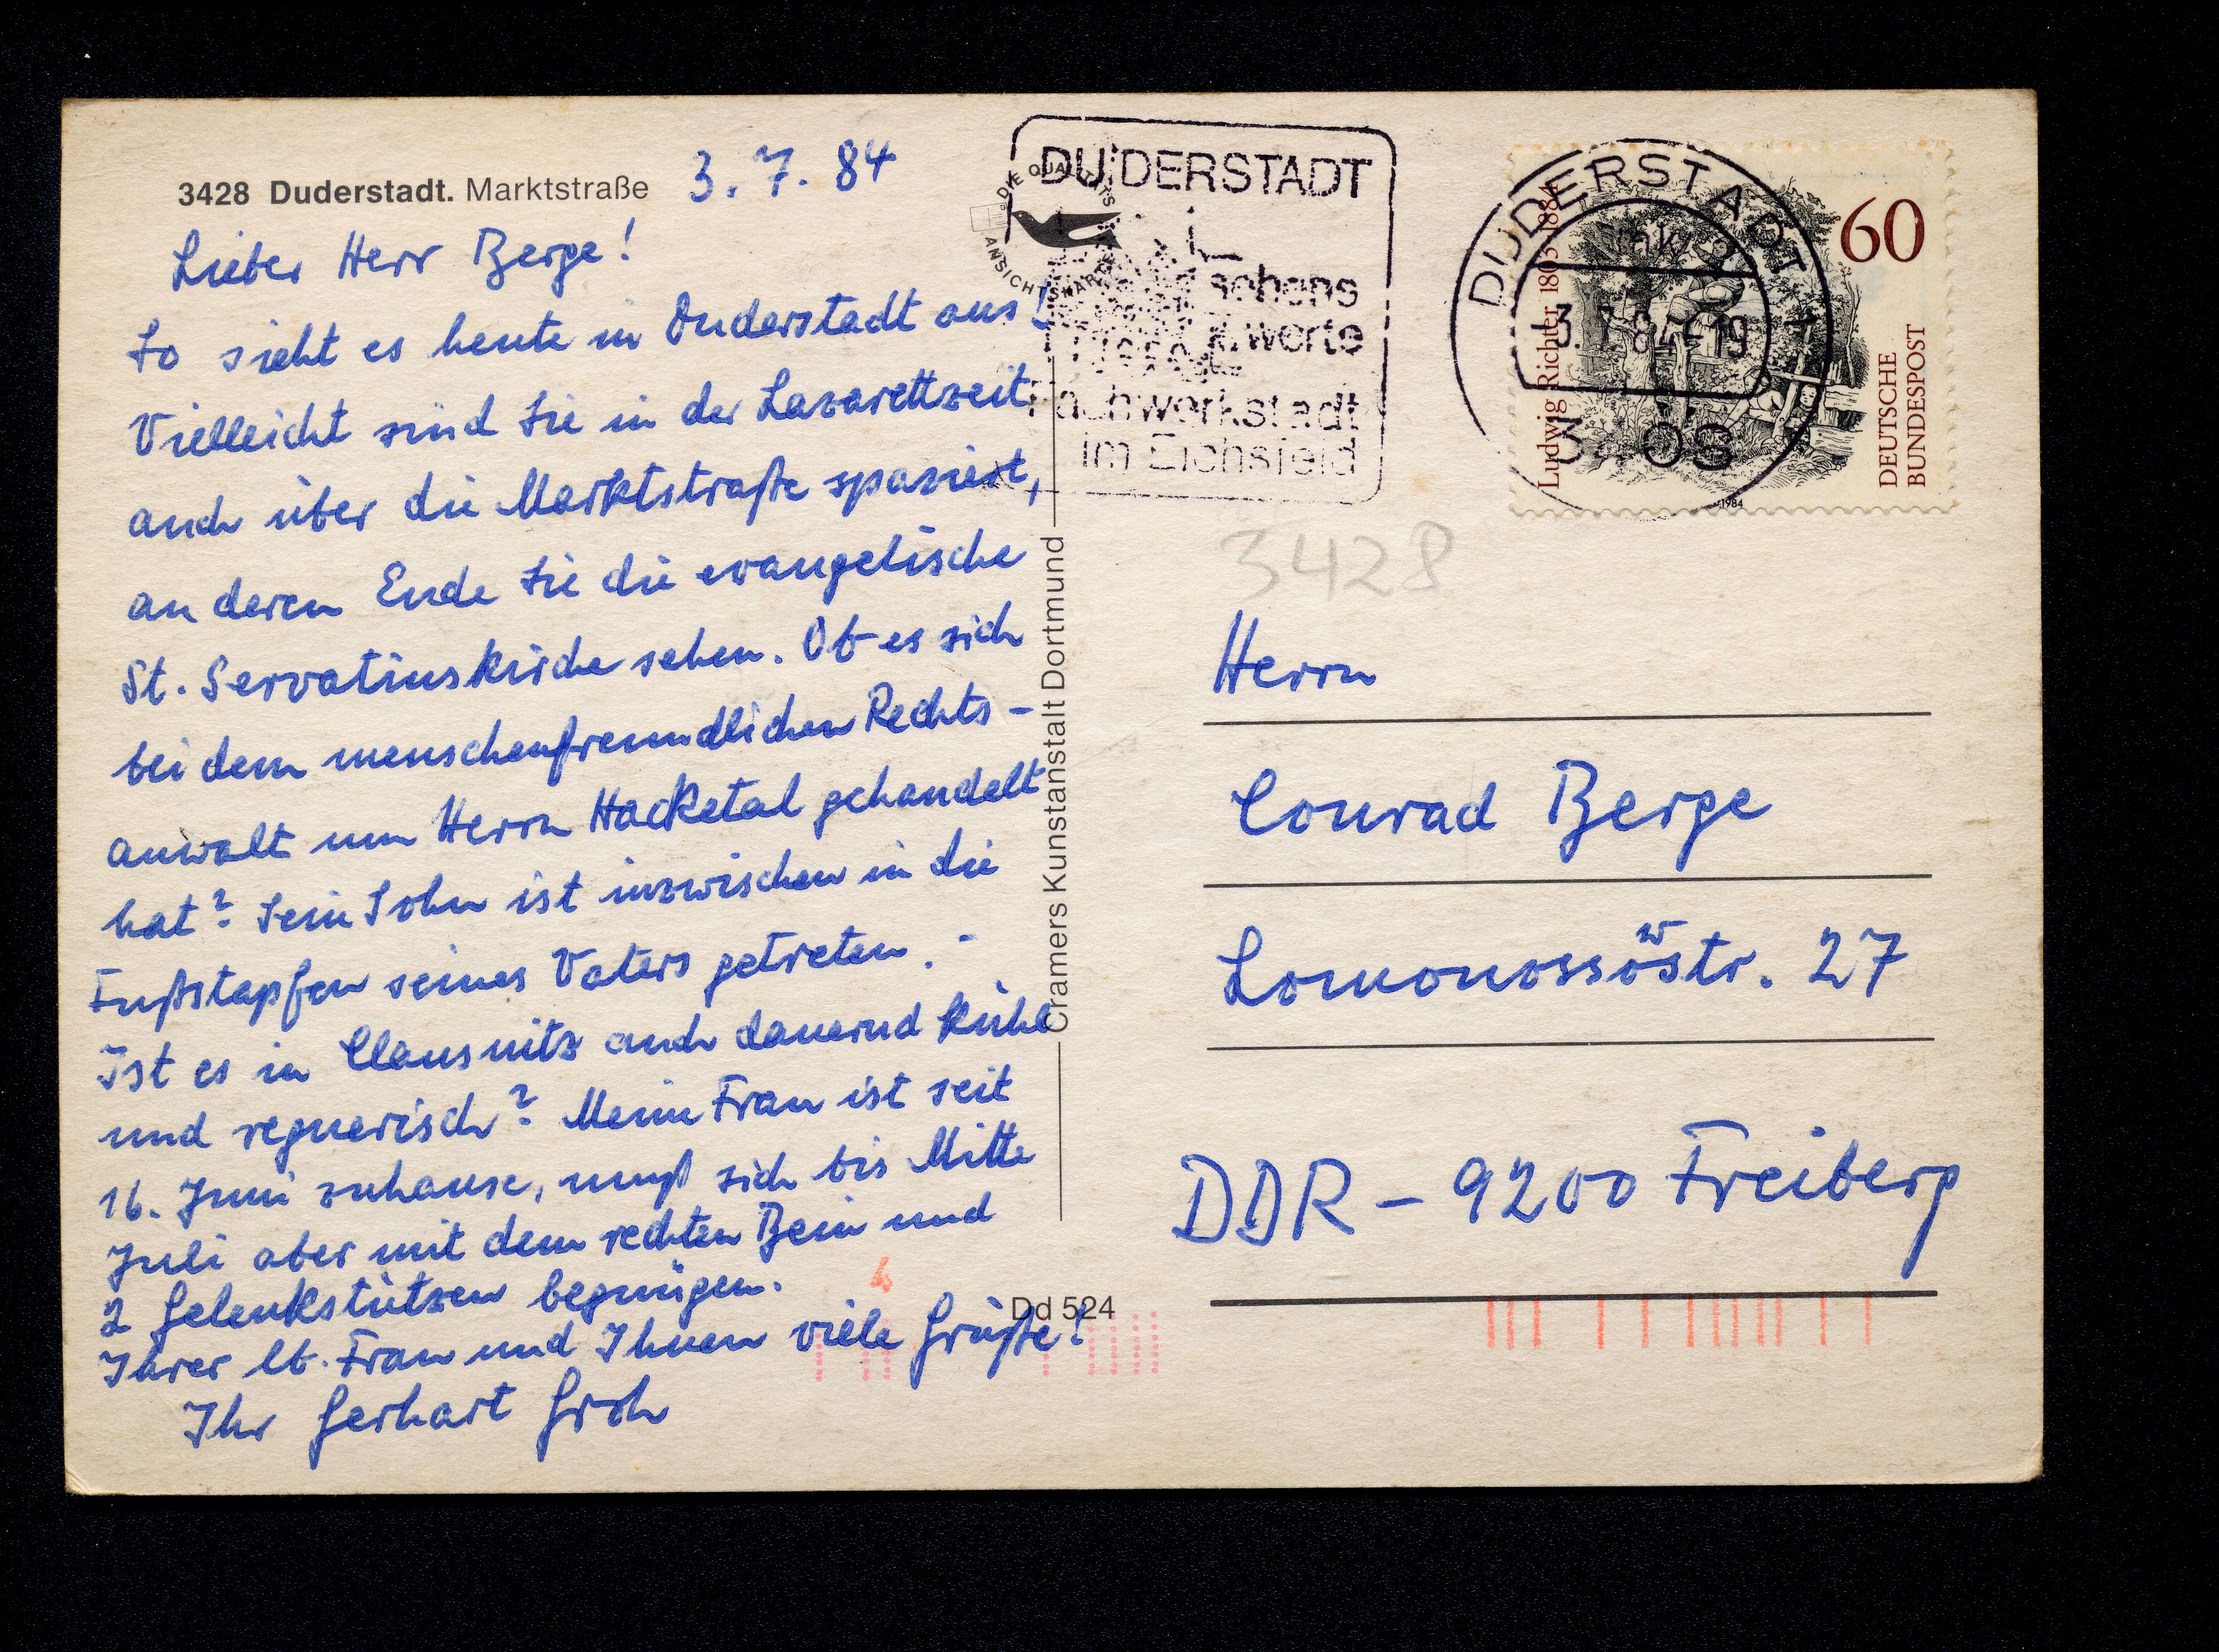 3428 Duderstadt. Marktstraße 3. 7. 84
Lieber Herr Berge!
So sieht es heute in Duderstadt aus!
Vielleicht sind Sie in der Lazarettzeit
auch über die Marktstraße spaziert,
an deren Ende Sie die evangelische
St. Servatiuskirche sehen. Ob es sich
bei dem menschenfreundlichen Rechts-
anwalt um Herrn Hacketal gehandelt
hat? Sein Sohn ist inzwischen in die
Fußstapfen seines Vaters getreten. -
Ist es in Clausnitz auch dauernd kühl
und regnerisch? Meine Frau ist seit
16. Juni zuhause, muß sich bis Mitte
Juli aber mit dem rechten Bein und
2 Gelenkstützen begnügen.
Ihrer lb. Frau und Ihnen viele Grüße!
Ihr Gerhart Groh
Cramers Kunstanstalt Dortmund
Dd 524
4
DIE QUALITÄTS
ANSICHTSKARTE
DUDERSTADT
sehens
werte
Fachwerkstadt
im Eichsfeld
DUDERSTADT 1
3.7.84-19
3408
Ludwig Richter 1803-1884
60
DEUTSCHE
BUNDESPOST
1984
3428
Herrn
Conrad Berge
Lomonossowstr. 27
DDR - 9200 Freiberg